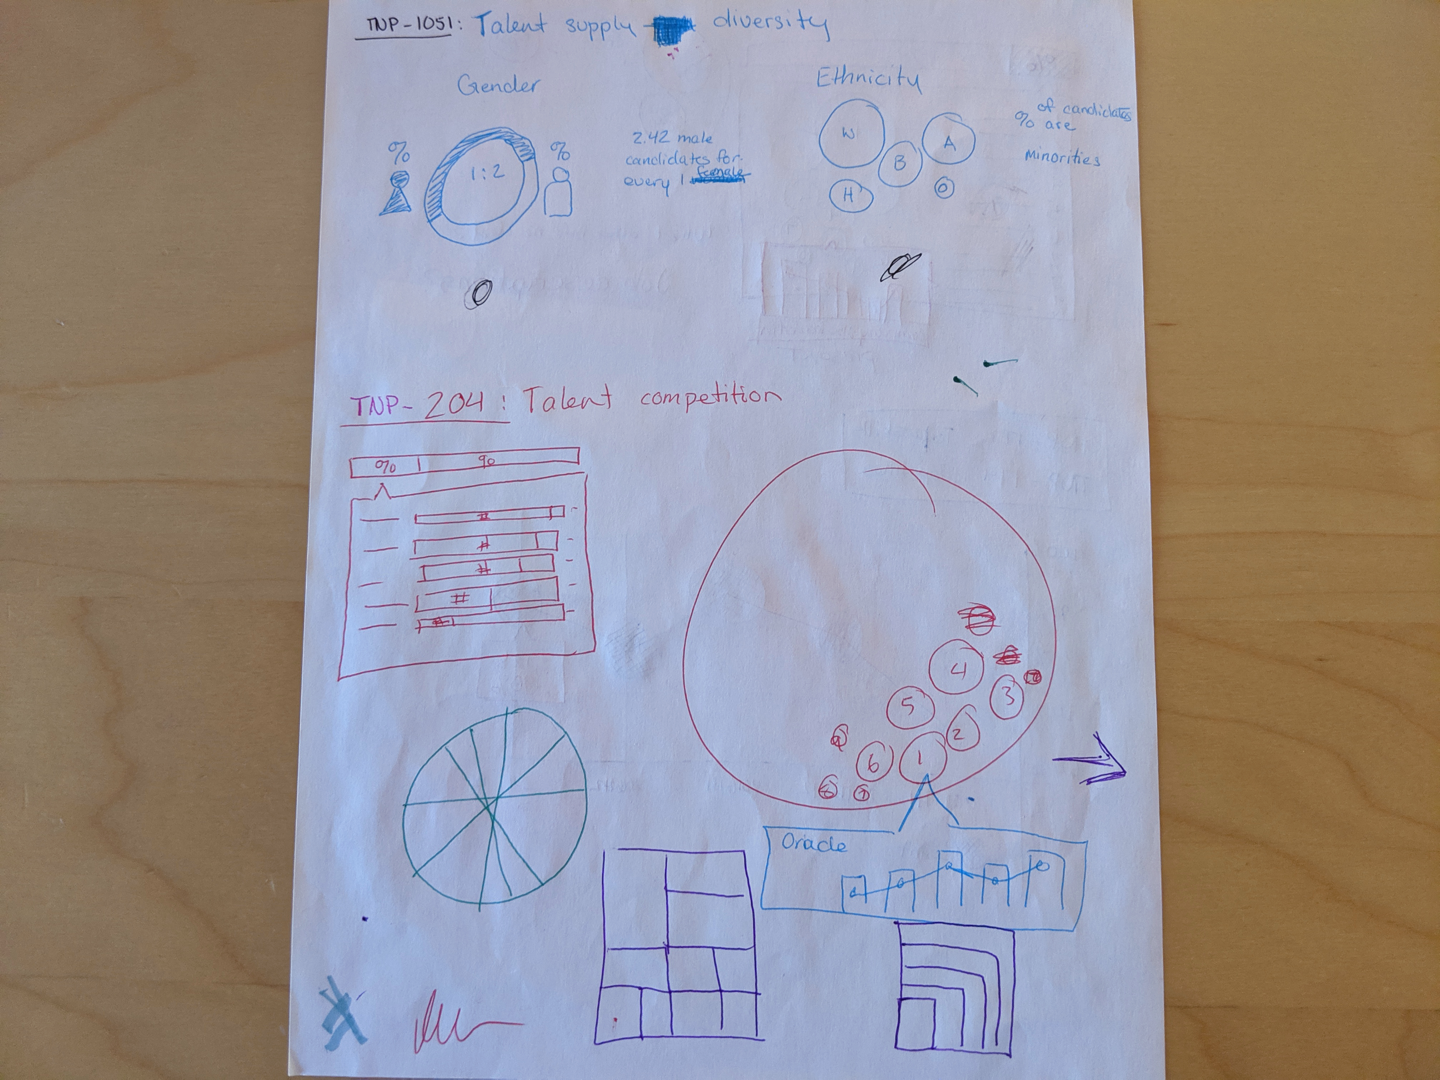 TNP-1051: Talent supply diversity
Gender
Ethnicity
%
%
1:2
2.42 male
candidates for
every 1 female
W
A
B
H
O
of candidates
% are
Minorities
TNP-204: Talent competition
% %
#
#
#
#
#
4
3
5
2
6
1
Oracle